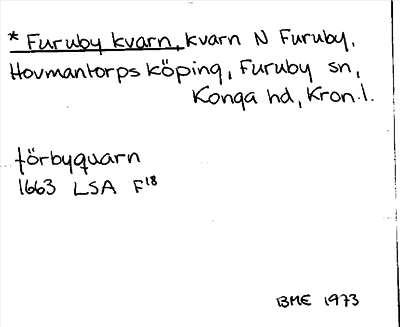 * Furuby kvarn, kvarn N Furuby,
Hovmantorps köping, Furuby sn,
Konga hd, Kron.l.
förbyquarn
1663 LSA F18
BME 1973